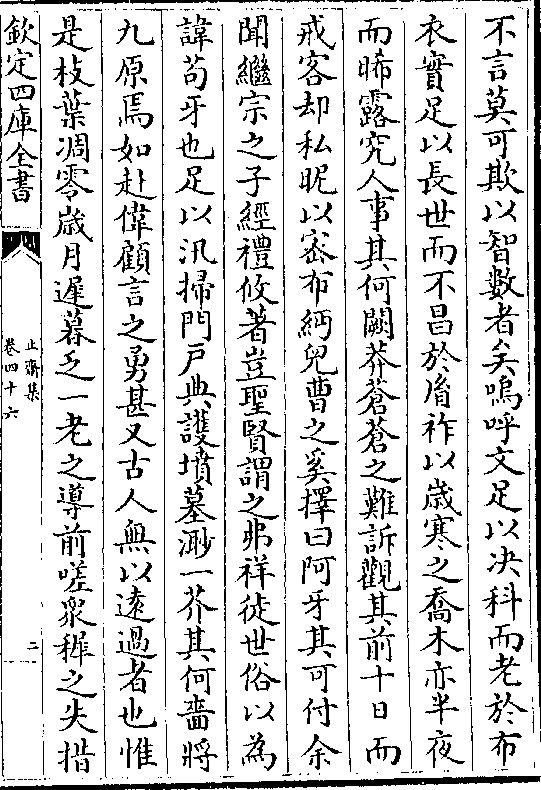 不言莫可欺以智數者矣嗚呼文足以决科而老於布
衣實足以長世而不昌於胤祚以歳寒之喬木亦半夜
而晞露究人事其何闕莽蒼蒼之難訴觀其前十日而
戒客却私昵以密布紼兒曹之奚擇曰阿牙其可付余
聞繼宗之子經禮攸著豈聖賢謂之弗祥徒世俗以為
諱苟牙也足以汛掃門戸典護墳墓渺一芥其何嗇將
九原焉如赴偉顧言之勇甚又古人無以逺過者也惟
是枝葉凋零歳月遲暮乏一老之導前嗟衆穉之失措
欽定四庫全書
止齋集
卷四十六
二